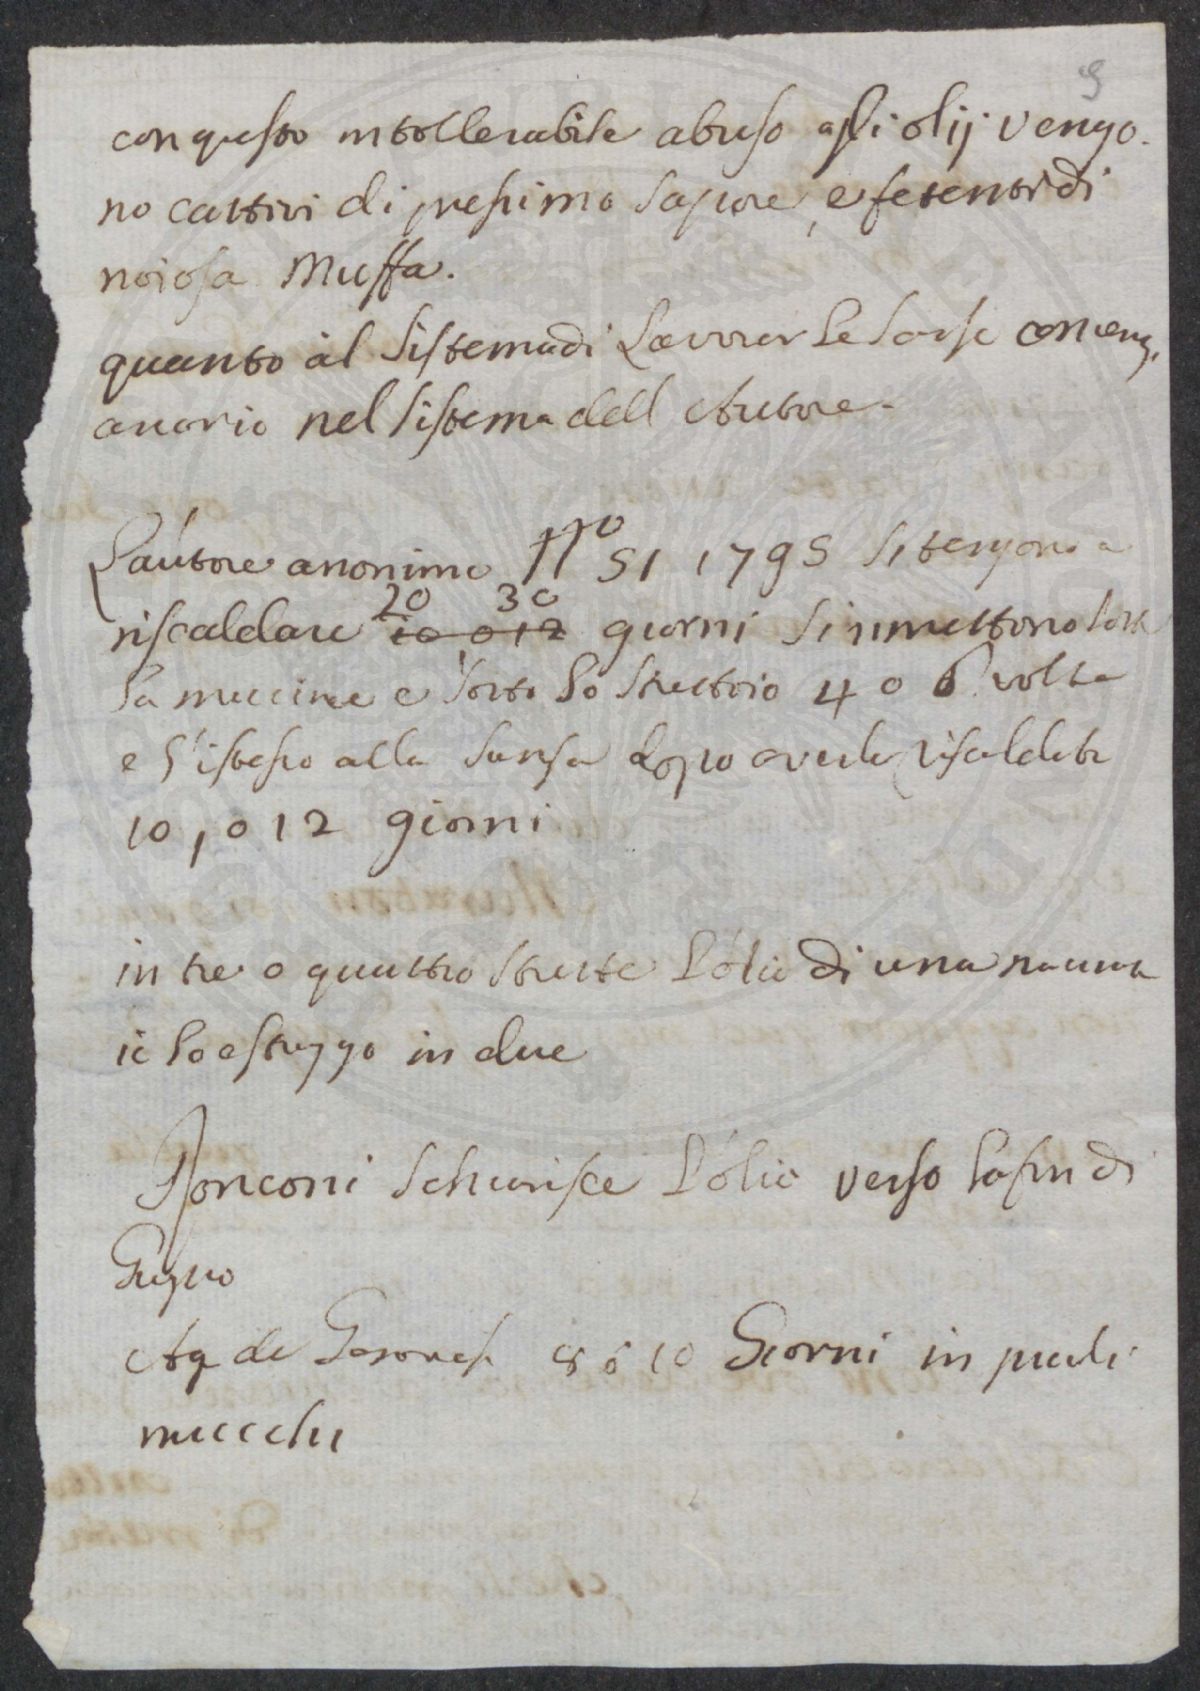 9
con questo intollerabile abuso gli olij vengo-
no cattivi di pessimo sapore, e fetenti di
noiosa Muffa.
quanto al Sistema di Lavorar le Sanse
nel Sistema dell Autore.
L'autore anonimo N.º 51 1795 si tengono a
20 30
riscaldare 10, o 12 giorni si rimettono sotto
la macine e sotto lo Strettoio 4 o 6 volte
e l'istesso alla Sansa dopo averle riscaldate
10, o 12 giorni
in tre o quattro strette l'olio di una
io lo estraggo in due
Ronconi Schiarisce l'olio verso la fin di
8 ó 10 Giorni in